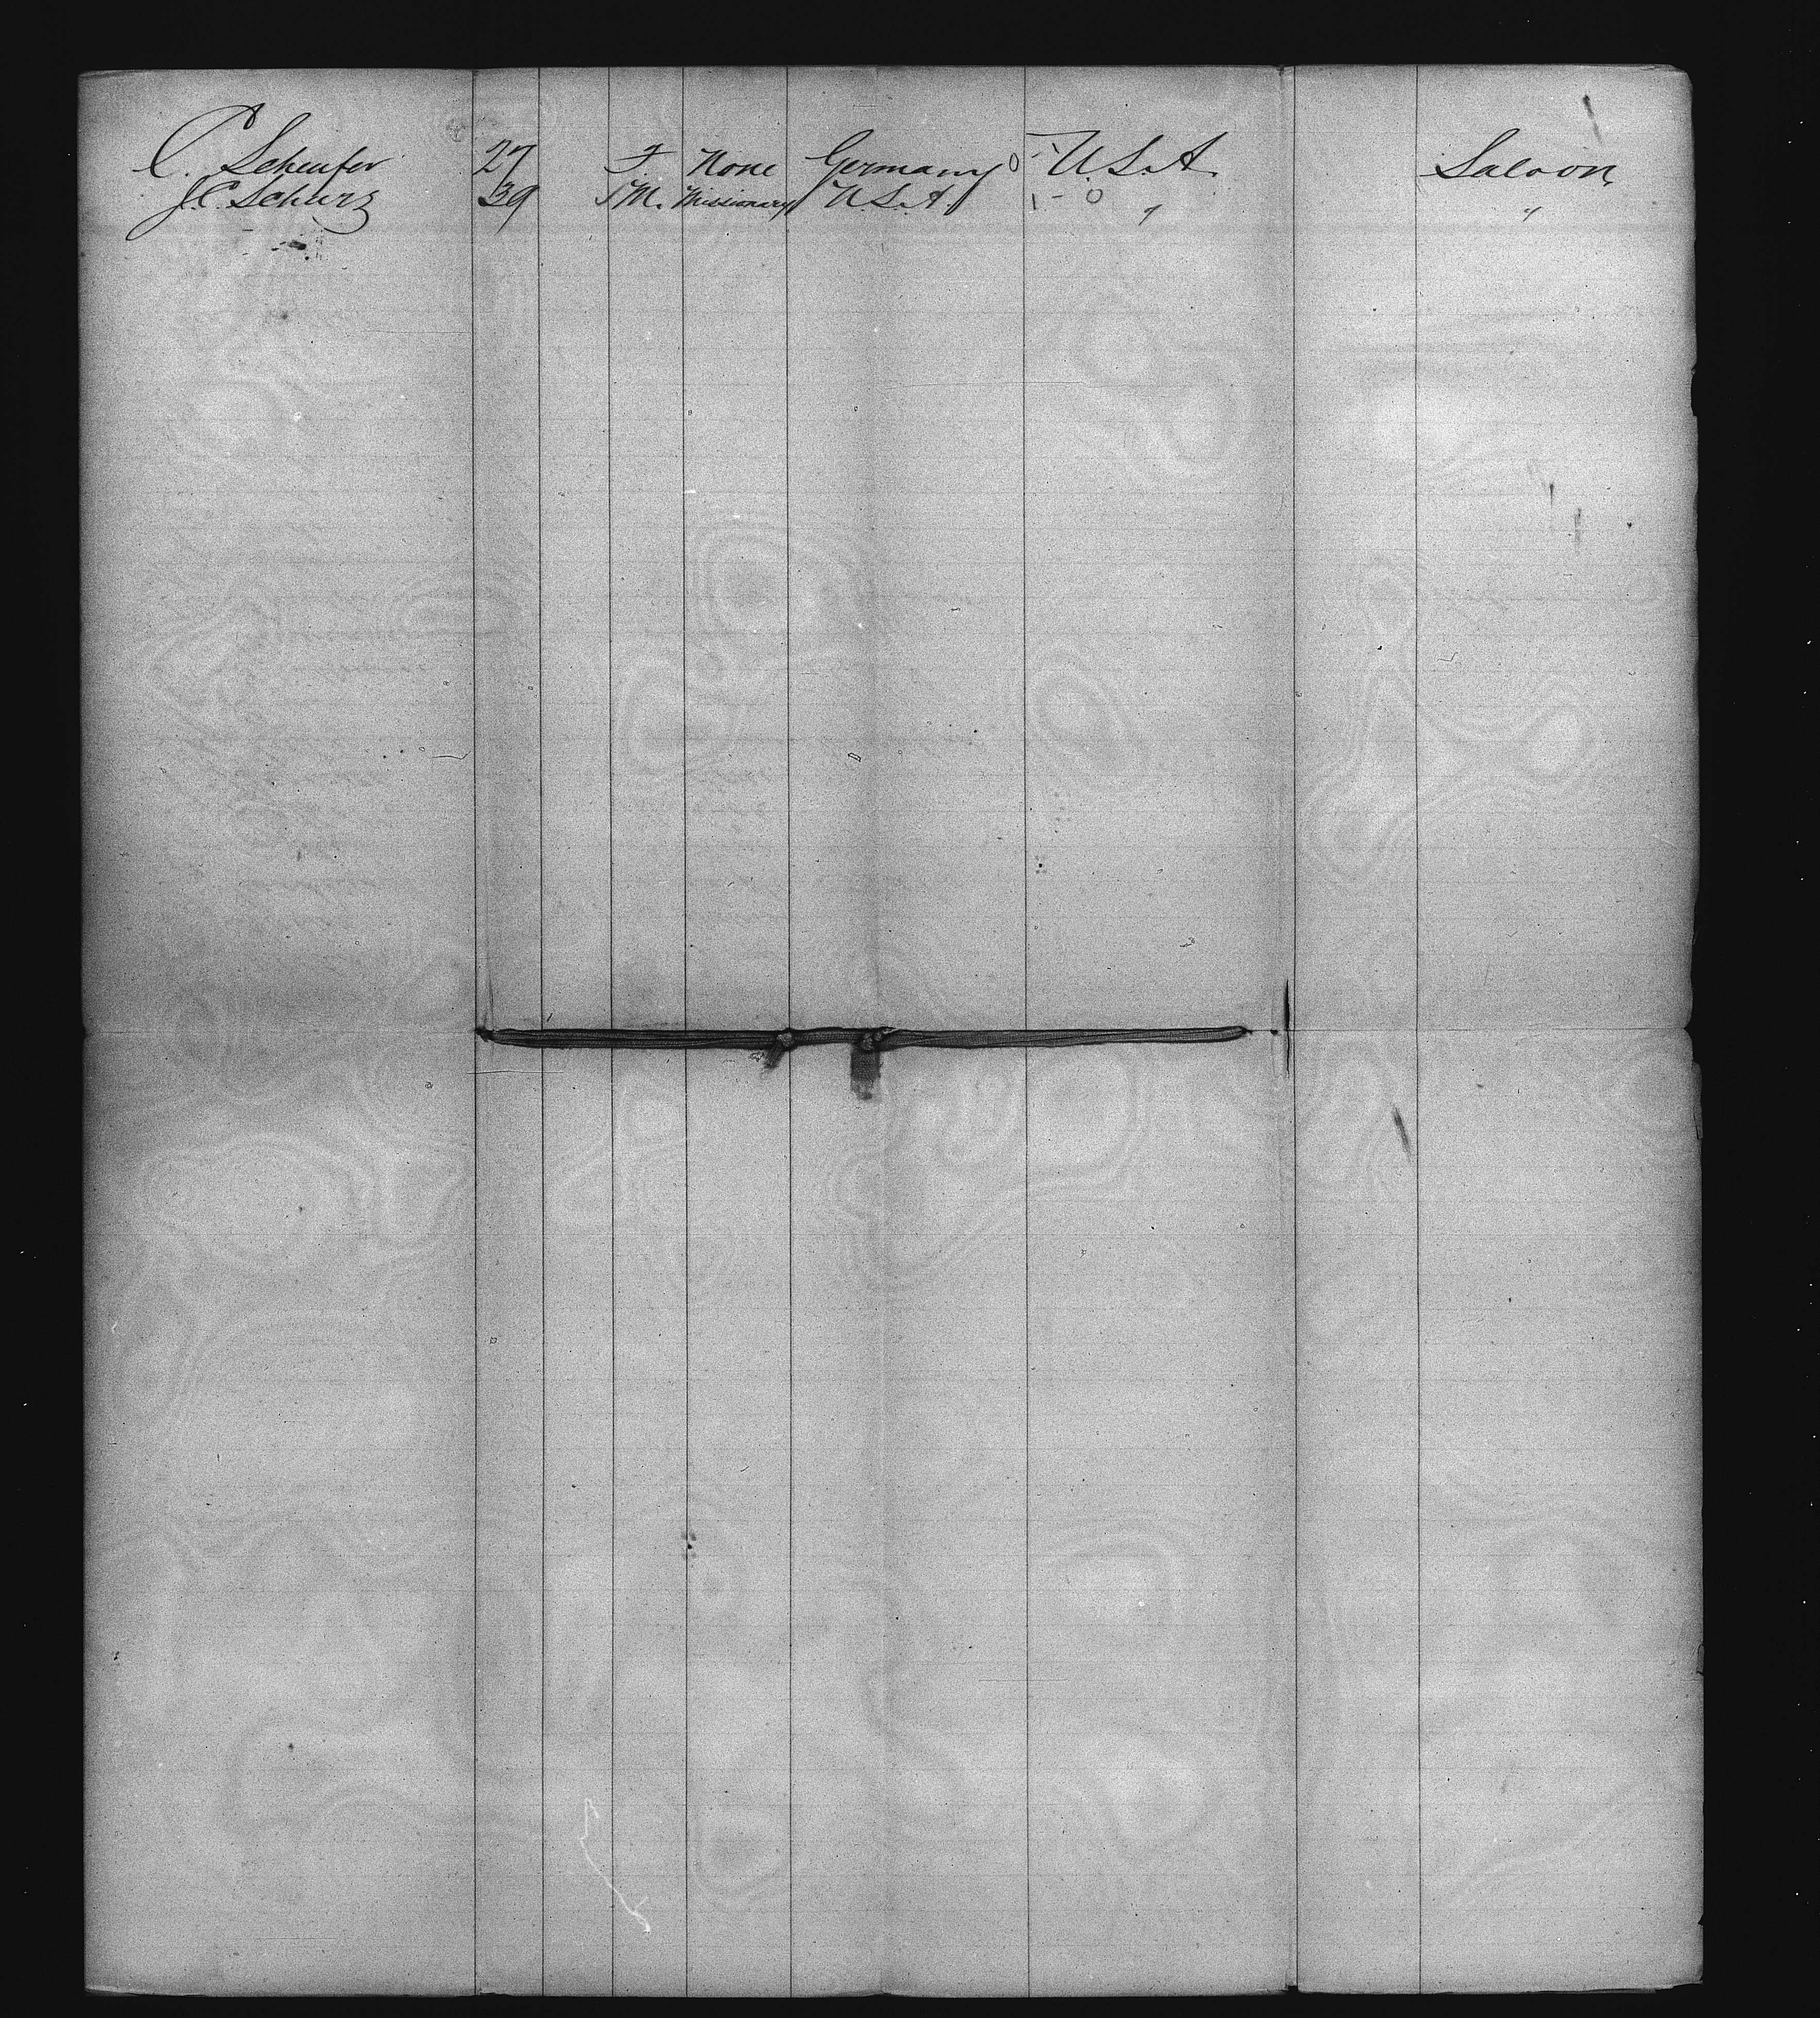 C. Scheufer 27 F. None Germany 0 - U.S.A. Saloon
J.C. Schurz 39 M. Missionary U.S.A. 1 - 0 " "